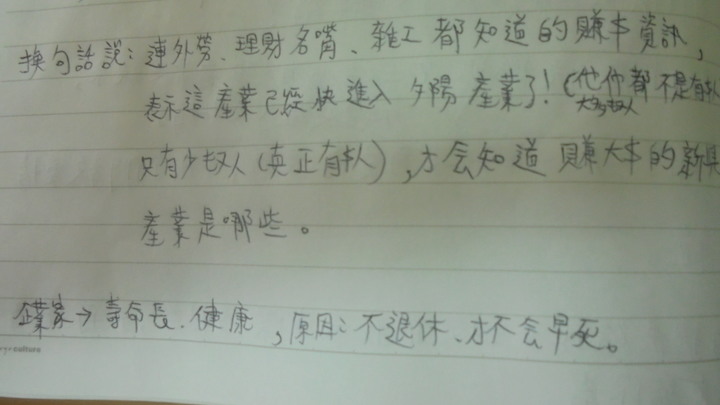 換句話說：連外勞、理財名嘴、雜工都知道的賺本資訊，
表示這產業已經快進入夕陽產業了！(他们都不是有
大多数人
只有少数人(真正有本人)，才会知道賺大本的新
產業是哪些。
企業家→壽命長、健康，原因：不退休、才不会早死。
culture